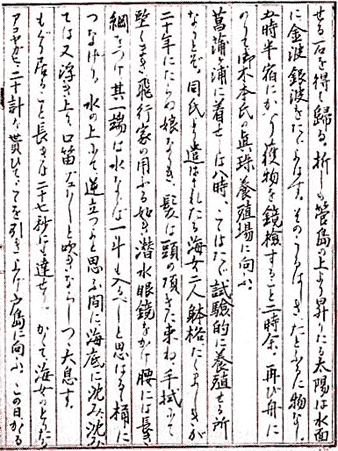 せる石を得て歸る。折しも菅島の上より昇りたる太陽は水面
に金波銀波をたゞよはす。そのうるはしきたとふるに物なし。
五時半宿にかへり獲物を鏡檢すること一時余、再び舟に
のりて御木本氏の眞珠養殖場に向ふ。
菖蒲ヶ浦に着せしは八時、こはたゞ試驗的に養殖せる所
なりとぞ。同氏より遣はされたる海女二人躰格たくましきが
二十年にたらぬ娘なりき、髪は頭の頂きに束ね、手拭にて
堅くしまき飛行家の用ふる如き潜水眼鏡をかけ腰には長き
綱をつけ其一端は水ならば一斗も入るべしと思はるゝ桶に
つなげり。水の上にて逆立つよと思ふ間に海底に沈み、沈み
ては又浮き上り口笛ひりひりと吹きならしつゝ大息す。
もぐり居ること長きは二十七秒にも達せり。かくて海女のとりたる
アコヤガヒ二十計りを貰ひて、こを引き上げ戸島に向ふ。この日かる